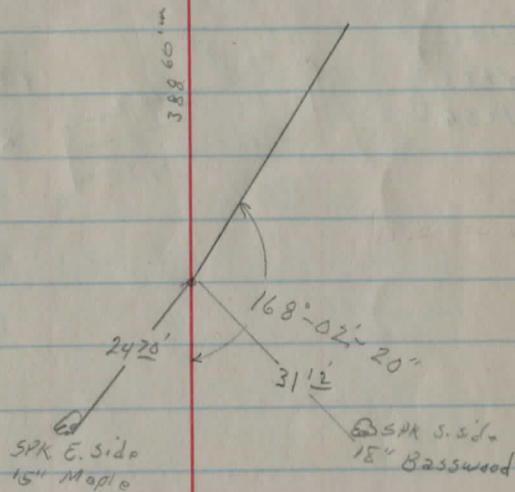 388 60'm
168°-02'-20"
24 70'
31 12'
SPK E. Side
15" Maple
SPK S. Side
18" Basswood